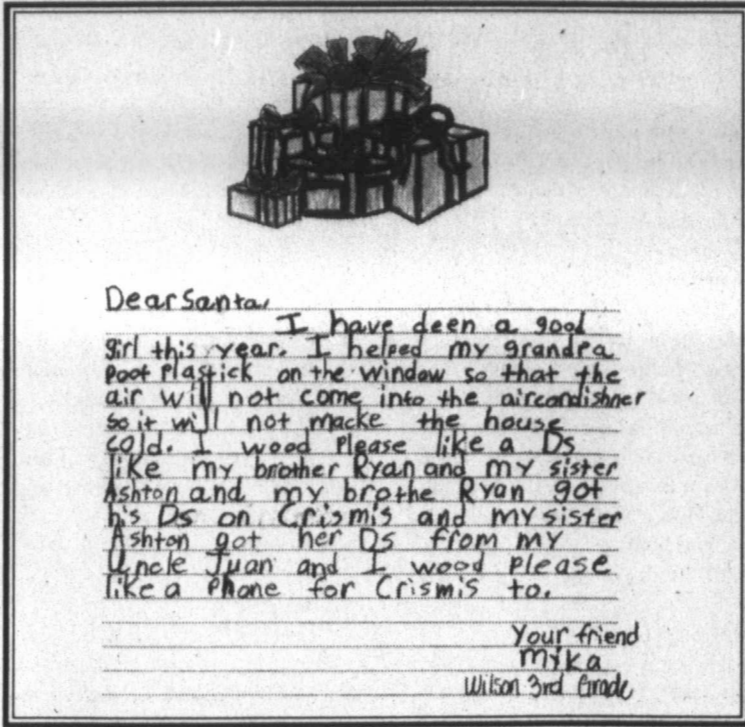 Dear Santa,
I have deen a good
girl this year. I helped my grandpa
poot Plastick on the window so that the
air will not come into the aircondishner
so it will not macke the house
cold. I wood Please like a Ds
like my brother Ryan and my sister
Ashton and my brothe Ryan got
his Ds on Crismis and my sister
Ashton got her Ds from my
Uncle Juan and I wood Please
like a Phone for Crismis to.
Your friend
Myka
Wilson 3rd Grade